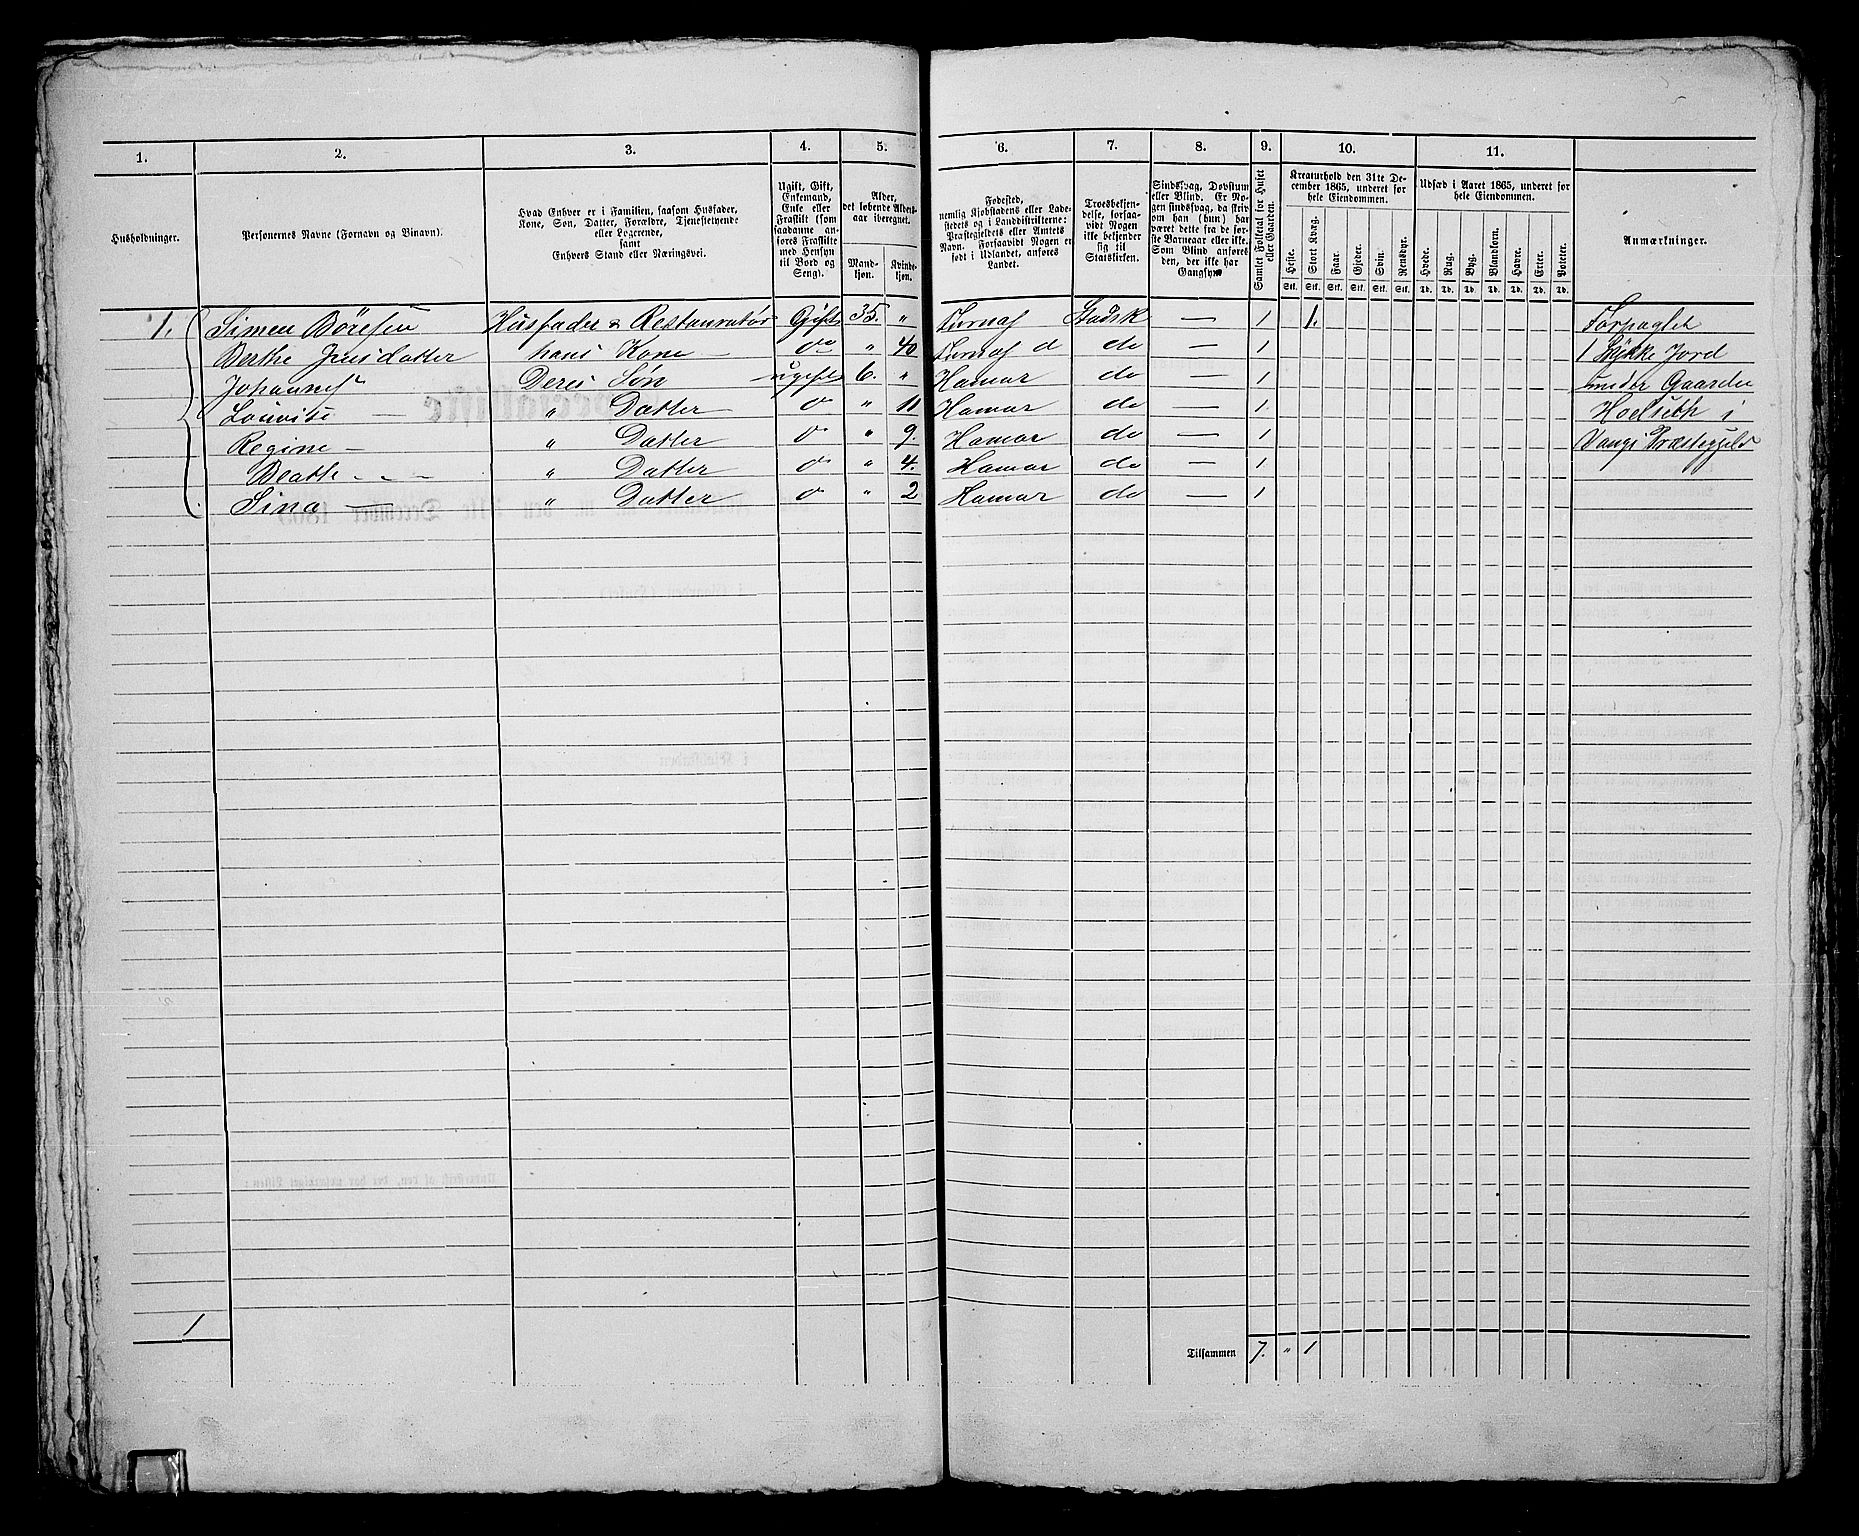 1. 2. 3. 4. 5. 6. 7. 8. 9. 10. 11.
Husholdninger.
Personernes Navne (Fornavn og Binavn).
Hvad Enhver er i Familien, saasom Husfader,
Kone, Søn, Datter, Forældre, Tjenestetyende
eller Logerende,
samt
Enhvers Stand eller Næringsvei.
Ugift, Gift,
Enkemand,
Enke eller
Fraskilt (som
saadanne an-
føres Fraskilte
med Hensyn
til Bord og
Seng).
Alder,
det løbende Alders-
aar iberegnet.
Mand-
kjøn.
Kvinde-
kjøn.
Fødested,
nemlig Kjøbstadens eller Lade-
stedets og i Landdistrikterne:
Præstegjeldets eller Amtets
Navn. Forsaavidt Nogen er
født i Udlandet, anføres
Landet.
Troesbekjen-
delse, forsaa-
vidt Nogen
ikke bekjender
sig til
Statskirken.
Sindssvag, Døvstum
eller Blind. Er No-
gen sindssvag, da skriv
om han (hun) har
været dette fra de før-
ste Barneaar eller ikke.
Som Blind ansøres
den, der ikke har
Gangsyn.
Samlet Folketal for Huset
eller Gaarden.
Kreaturhold den 31te De-
cember 1865, underet for
hele Eiendommen.
Heste. Stort Kvæg. Faar. Gjeder. Svin. Rensdyr.
Stk. Stk. Stk. Stk. Stk. Stk.
Udsæd i Aaret 1865, underet for
hele Eiendommen.
Hvede. Rug. Byg. Blandkorn. Havre. Erter. Poteter.
Td. Td. Td. Td. Td. Td. Td.
Anmærkninger.
1. Simen Børesen Husfader & Restauratør Gift 35. " Furnæs Statsk — 1 1. Forpagtet
Berthe datter hans Kone — do " 40 Furnæs do — 1 1 Stykke Jord
Johannes Deres Søn ugift 6. " Hamar do — 1 under Gaarden
Louvise — " Datter o " 11 Hamar do — 1 i
Regine — " Datter o " 9. Hamar do — 1 Vangs Præstegjeld
Beatte - - - " Datter o " 4. Hamar do — 1
Sina — " Datter o " 2 Hamar do — 1
1 Tilsammen 7. " 1